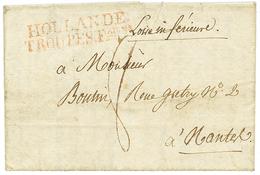 HOLLANDE
TROUPES F
Loire inférieure.
à Monsieur
Boutin Rue Gretry N.
à Nantes